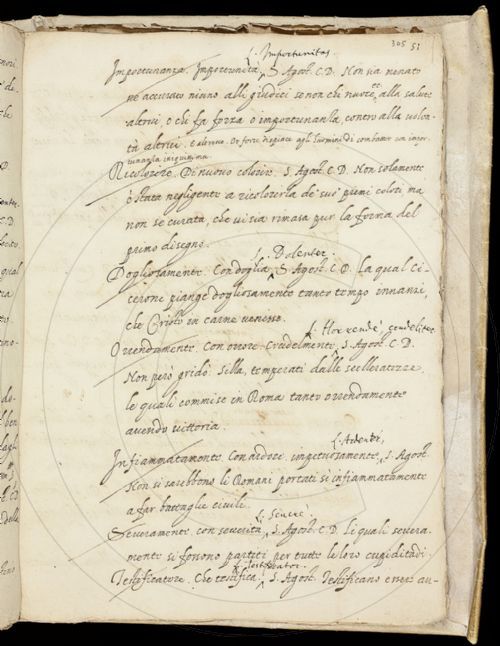 305 51
L. Importunitas.
Importunanza. Importunità, S. Agost. C.D. Non sia menato
ne accusato niuno alli giudici se non che nuoce alla salute
altrui, o chi fa forza o importunanza contro alla volon-
tà altrui. E altrove. O forse dispiace agl'huomini di combatter con impor-
tunanza iniquissima
Ricolorare. Di nuovo colorire. S. Agost. C.D. Non solamente
è stata negligente a ricolorarla de suoi primi colori ma
non se curata, che vi sia rimasa pur la forma del
primo disegno.
L. Dolenter.
Dogliosamente. Con doglia, S. Agost. C.D. La qual Ci-
cerone piange dogliosamente tanto tempo innanzi,
che Cristo in carne venisse.
L. Horrendè, crudeliter
Orrendamente. Con orrore. Crudelmente, S. Agost. C.D.
Non però gridò Silla, temperati dalle scelleratezze
le quali commise in Roma tanto orrendamente
avendo vittoria.
L. Ardenter,
Infiammatamente. Con ardore impetuosamente, S. Agost.
Non si sarebbono li Romani portati si infiammatamente
a far battaglie civile.
L. Severe.
Severamente. con severità, S. Agost. C.D. Li quali severa-
mente si fossono partiti per tutte le loro cupiditadi
L. Testificator.
Testificatore. Che testifica, S. Agost. Testificano